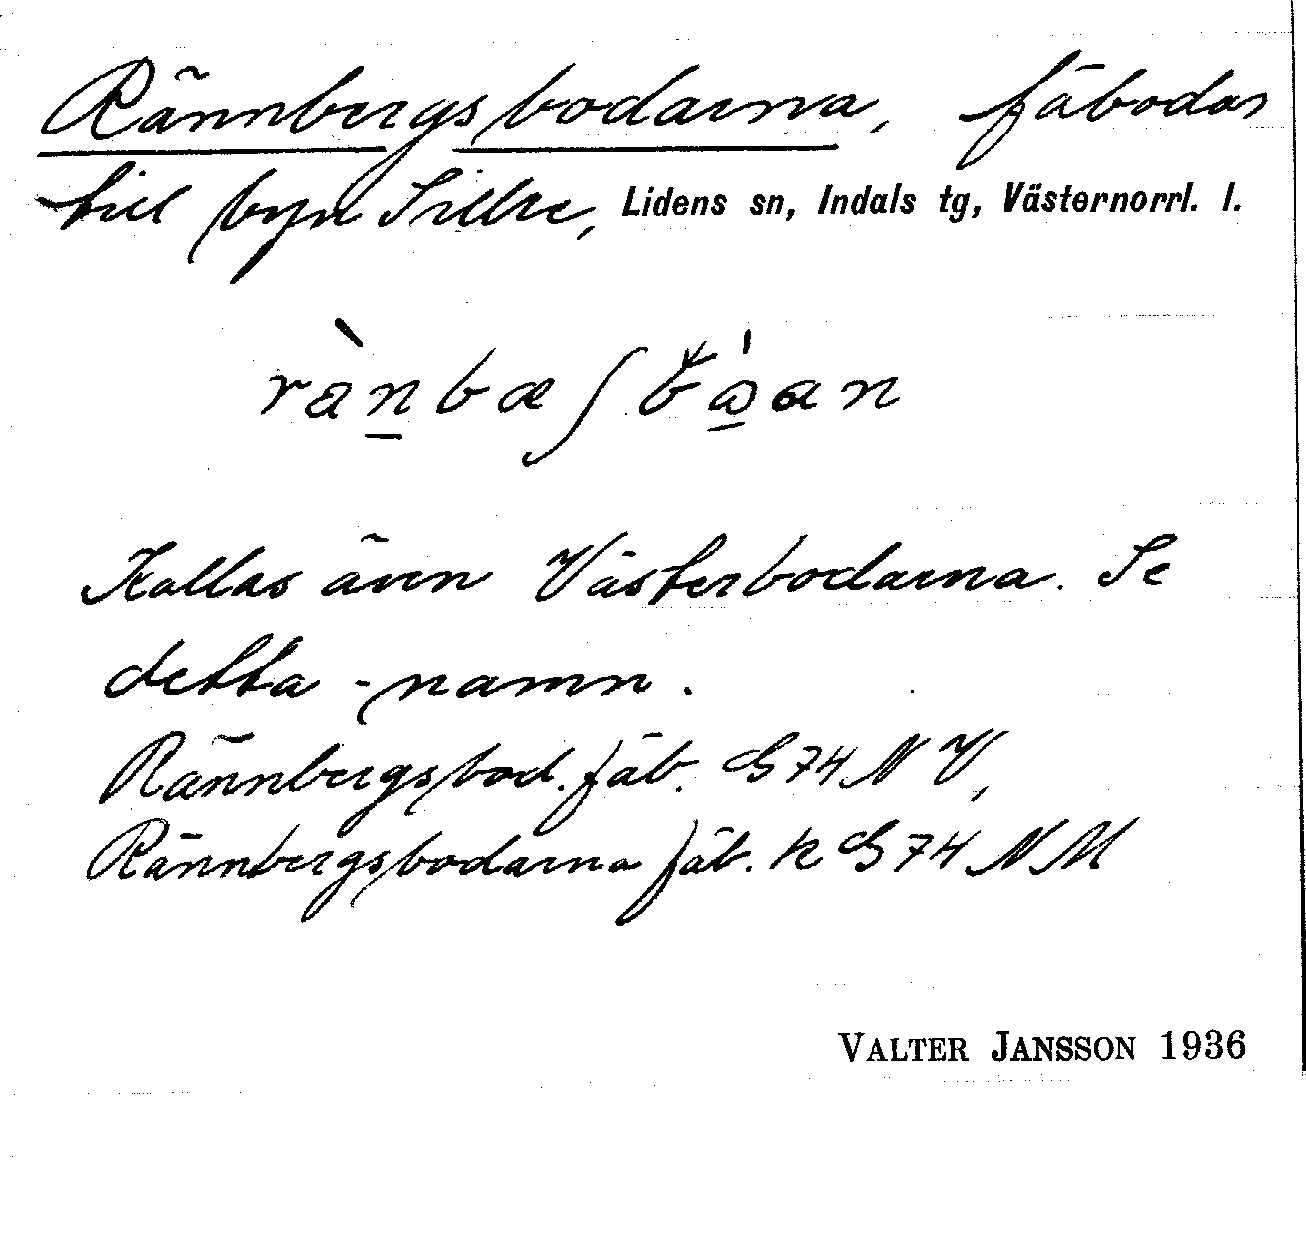 Rännbergsbodarna, fäbodar
till byn Sillre, Lidens sn, Indals tg, Västernorrl. l.
Kallas även Västerbodarna. Se
detta namn.
Rännbergsbod. fäb. G 74 NV,
Rännbergsbodarna fäb. k G 74 NM
VALTER JANSSON 1936